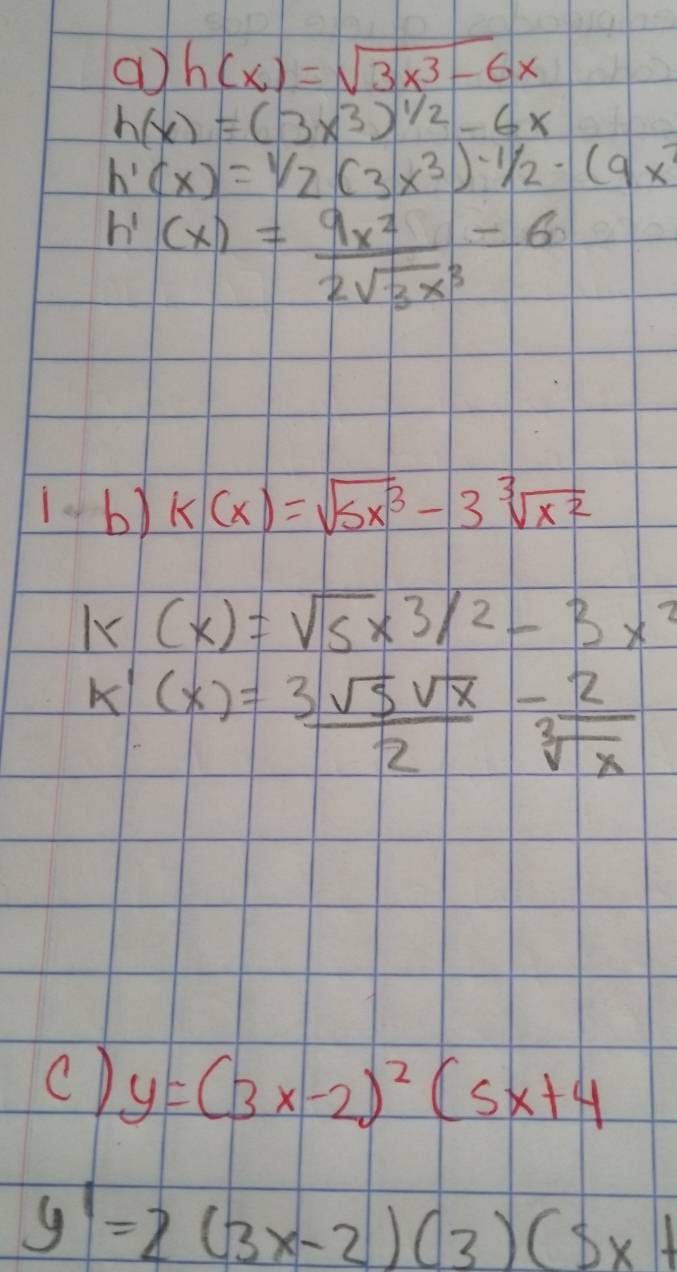 a) h(x) = √3x³ - 6x
h(x) = (3x³)^1/2 - 6x
h'(x) = 1/2 (3x³)^-1/2 · (9x²
h'(x) = 9x²/2√3x³ - 6
1. b) K(x) = √5x³ - 3 ∛x²
K(x) = √5x 3/2 - 3x²
K'(x) = 3√5√x/2 - 2/∛x
c) y = (3x-2)² (5x+4
y' = 2(3x-2)(3)(5x+